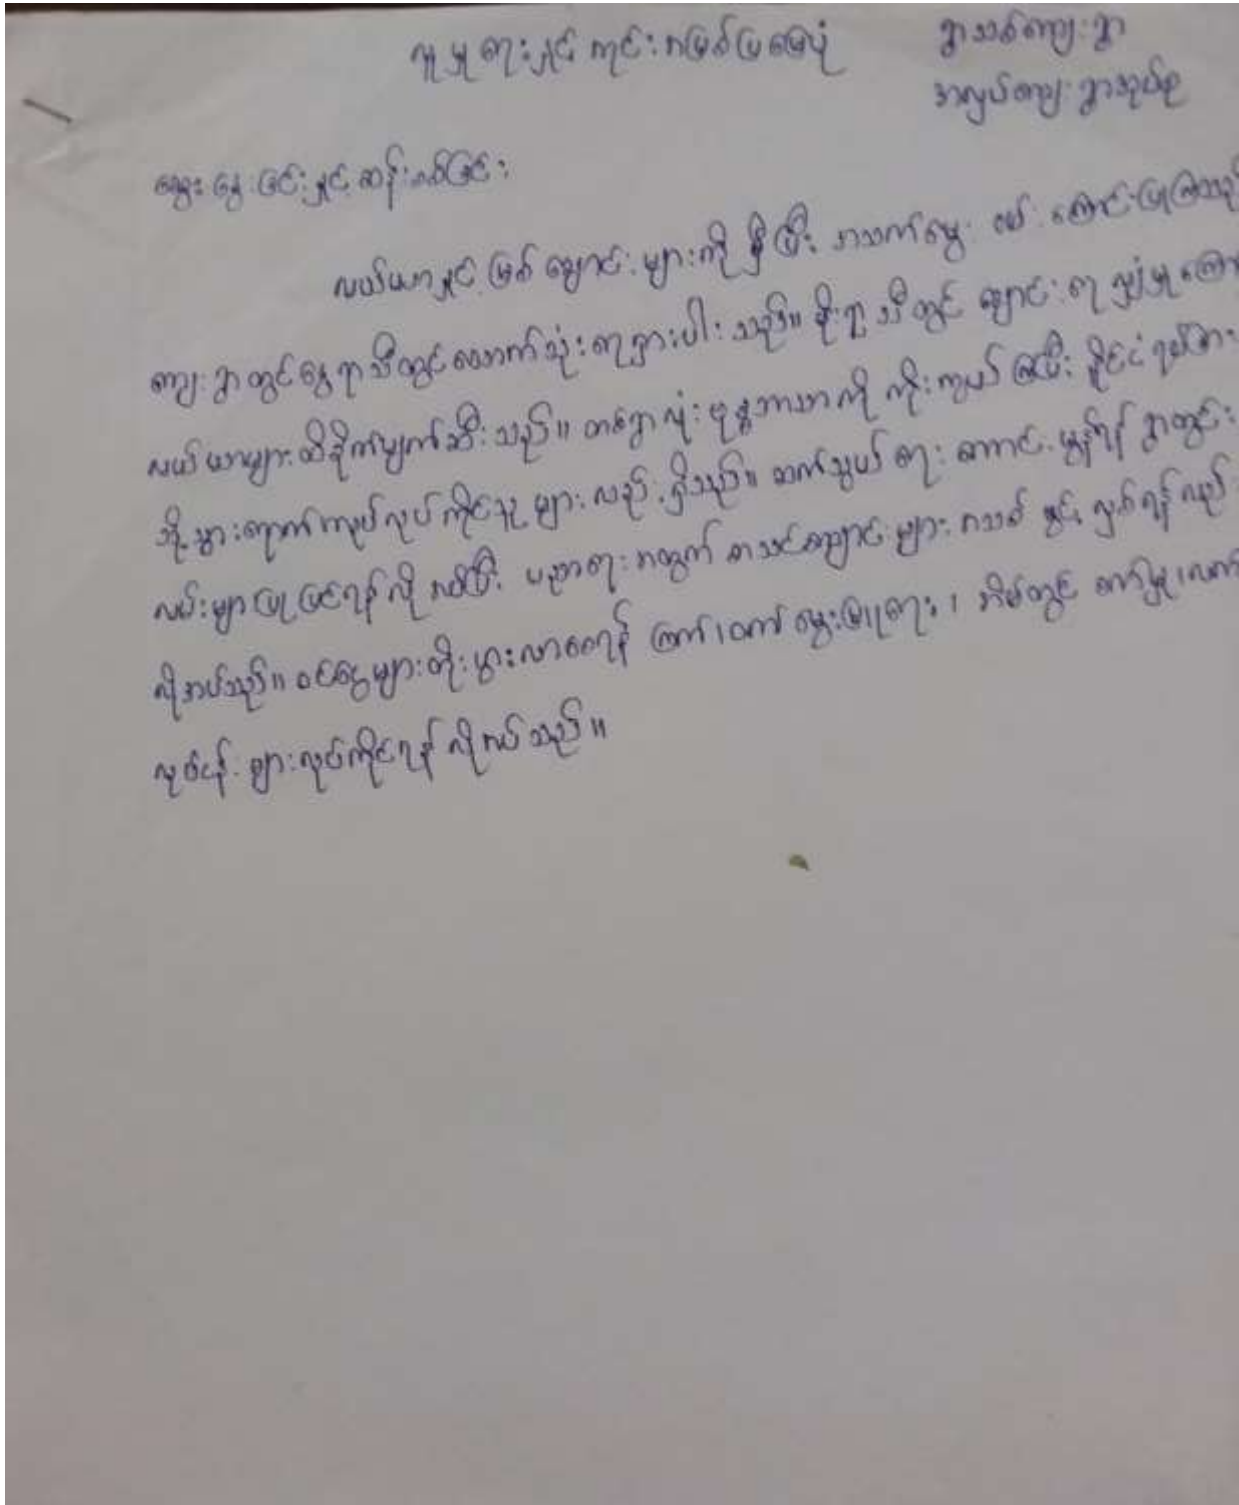 လူမှုရေးနှင့် ကုင်းအမြစ်ပြမြေပုံ
ရွာသစ်ကျေးရွာ
အလှပ်ကျေးရွာအုပ်စု
ဆွေးနွေးခြင်းနှင့် ဆန်းစစ်ခြင်း
လယ်ယာနှင့် မြစ်ချောင်းများကို မှီပြီး အသက်မွေး ဝမ်းကြောင်းပြုကြသည်
ကျေးရွာတွင်နွေရာသီတွင်သောက်သုံးရေရှားပါးသည်။ မိုးရာသီတွင် ချောင်းရေလျှံမှုကြော
လယ်ယာများထိခိုက်ပျက်ဆီးသည်။ တစ်ရွာလုံး ဗုဒ္ဓဘာသာကို ကိုးကွယ်ကြပြီး နိုင်ငံရပ်ခြား
သို့သွားရောက်အလုပ်လုပ်ကိုင်သူများလည်းရှိသည်။ ဆက်သွယ်ရေးကောင်းမွန်ရန် ရွာတွင်း
လမ်းများပြုပြင်ရန်လိုအပ်ပြီး ပညာရေးအတွက် စာသင်ကျောင်းများ အသစ်ဖွင့်လှစ်ရန်လည်း
လိုအပ်သည်။ ဝင်ငွေများတိုးပွားလာစေရန် ကြက်၊ဝက်မွေးမြူရေး၊ အိမ်တွင်းစက်မှု၊လက်
လုပ်ငန်းများလုပ်ကိုင်ရန် လိုအပ်သည်။